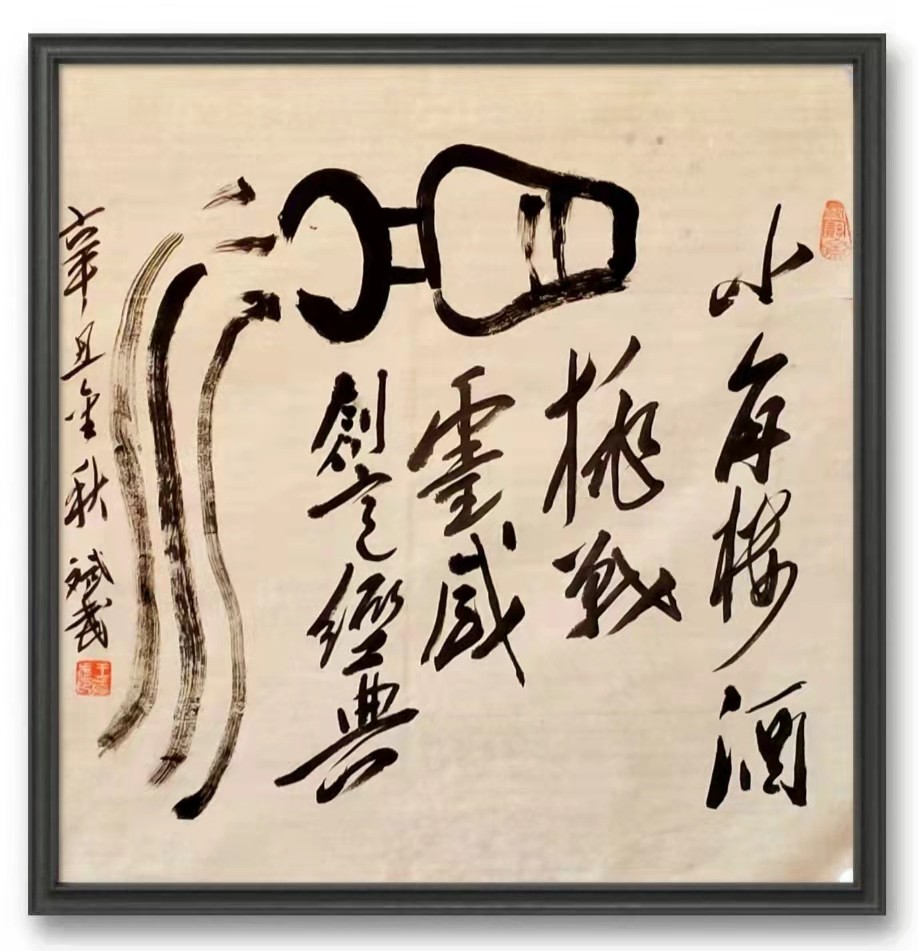 小角楼酒
挑戰
靈感
創經典
辛丑金秋 斌